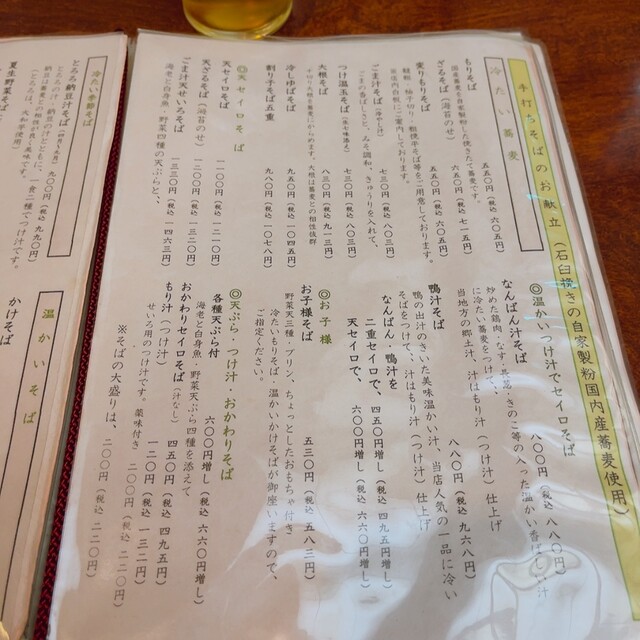 手打ちそばのお献立（石臼挽きの自家製粉国内産蕎麦使用）
冷たい蕎麦
もりそば 五五〇円（税込 六〇五円）
国産蕎麦を自家製粉した挽きたて蕎麦です。
ざるそば（海苔のせ） 六五〇円（税込 七一五円）
変りもりそば
並蕎麦 柚子切り・粗挽辛そば等をご用意しております。
ごま汁そば（冷やし汁） 七三〇円（税込 八〇三円）
ごまの香ばしさと、みそ調和、きゅうりを入れて。
つけ温玉そば 七三〇円（税込 八〇三円）
大根そば 八三〇円（税込 九一三円）
大根は蕎麦との相性抜群
冷しおろしそば 九五〇円（税込 一〇四五円）
割り子そば五重 九八〇円（税込 一〇七八円）
◎天セイロそば
天セイロそば 一一〇〇円（税込 一二一〇円）
天ざるそば（海苔のせ） 一二〇〇円（税込 一三二〇円）
ごま汁天せいろそば 一三三〇円（税込 一四六三円）
海老と白身魚、野菜四種の天ぷらと、、
◎温かいつけ汁でセイロそば
なんばん汁そば 八〇〇円（税込 八八〇円）
炒めた鶏肉・なす・長葱・きのこ等の入った温かい香ばしい汁
に冷たい蕎麦をつけて、
当地方の郷土汁、汁はもり汁（つけ汁）仕上げ
鴨汁そば 八八〇円（税込 九六八円）
鴨の出汁のきいた美味温かい汁、当店人気の一品に冷い
そばをつけて、汁はもり汁（つけ汁）仕上げ
なんばん／鴨汁を
二重セイロで、四五〇円増し（税込 四九五円増し）
天セイロで、六〇〇円増し（税込 六六〇円増し）
◎お子様
お子様そば 五三〇円（税込 五八三円）
野菜天三種、プリン、ちょっとしたおもちゃ付き
冷たいもりそば、温かいかけそばが御座いますので、
ご指定ください。
◎天ぷら・つけ汁・おかわりそば
各種天ぷら付 六〇〇円増し（税込 六六〇円増し）
海老と白身魚、野菜天ぷら四種を添えて
おかわりセイロそば（汁なし） 四五〇円（税込 四九五円）
もり汁（つけ汁） 一二〇円（税込 一三二円）
せいろ用のつけ汁です。薬味付き 二〇〇円（税込 二二〇円）
※そばの大盛りは、二〇〇円（税込 二二〇円）
冷たい季節そば
とろろ納豆汁そば 九〇〇円（税込 九九〇円）
一食二種でつけ汁です。
夏生野菜そば
温かいそば
かけそば